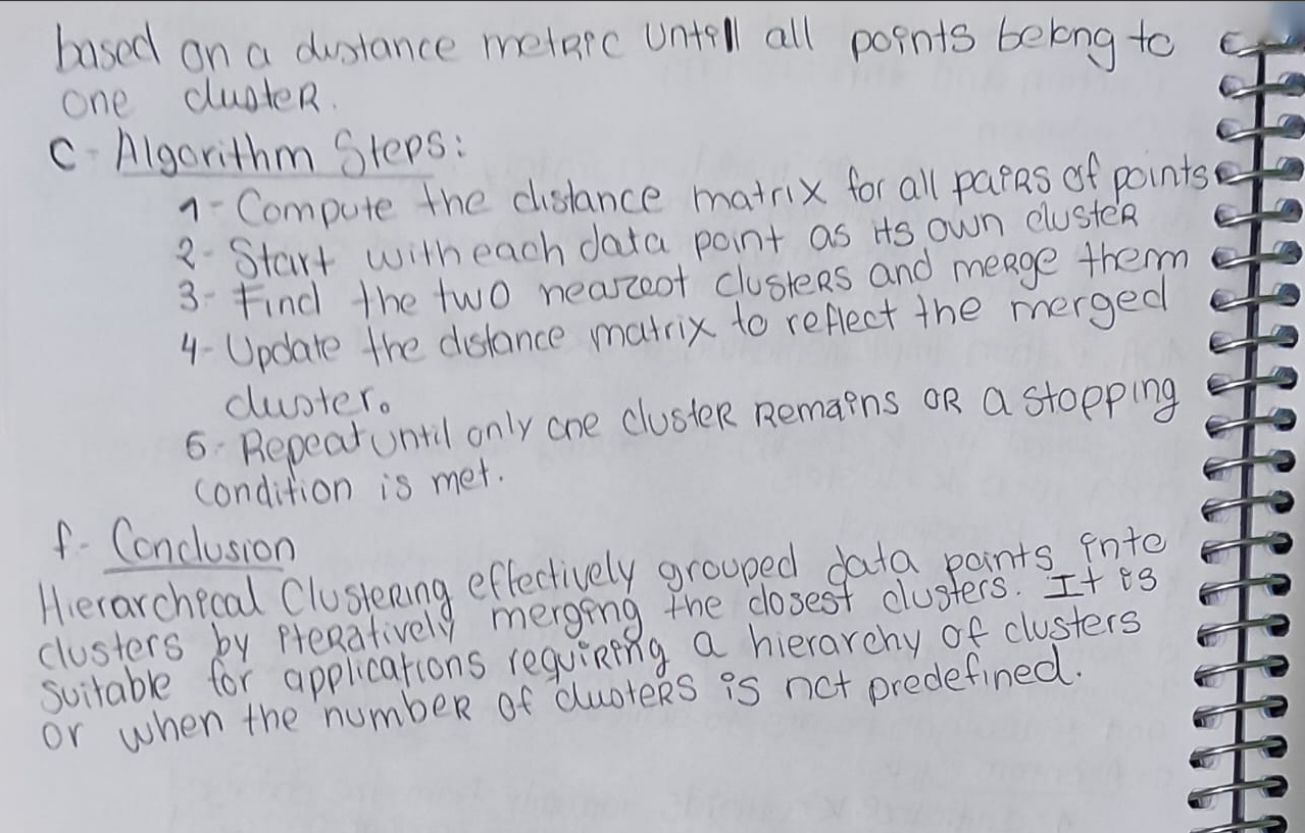 based on a distance metric untill all points belong to
one cluster.
C- Algorithm Steps:
1- Compute the distance matrix for all pairs of points
2- Start with each data point as its own cluster
3- Find the two nearest clusters and merge them
4- Update the distance matrix to reflect the merged
cluster.
5- Repeat until only one cluster remains or a stopping
condition is met.
f- Conclusion
Hierarchical Clustering effectively grouped data points into
clusters by iteratively merging the closest clusters. It is
suitable for applications requiring a hierarchy of clusters
or when the number of clusters is not predefined.